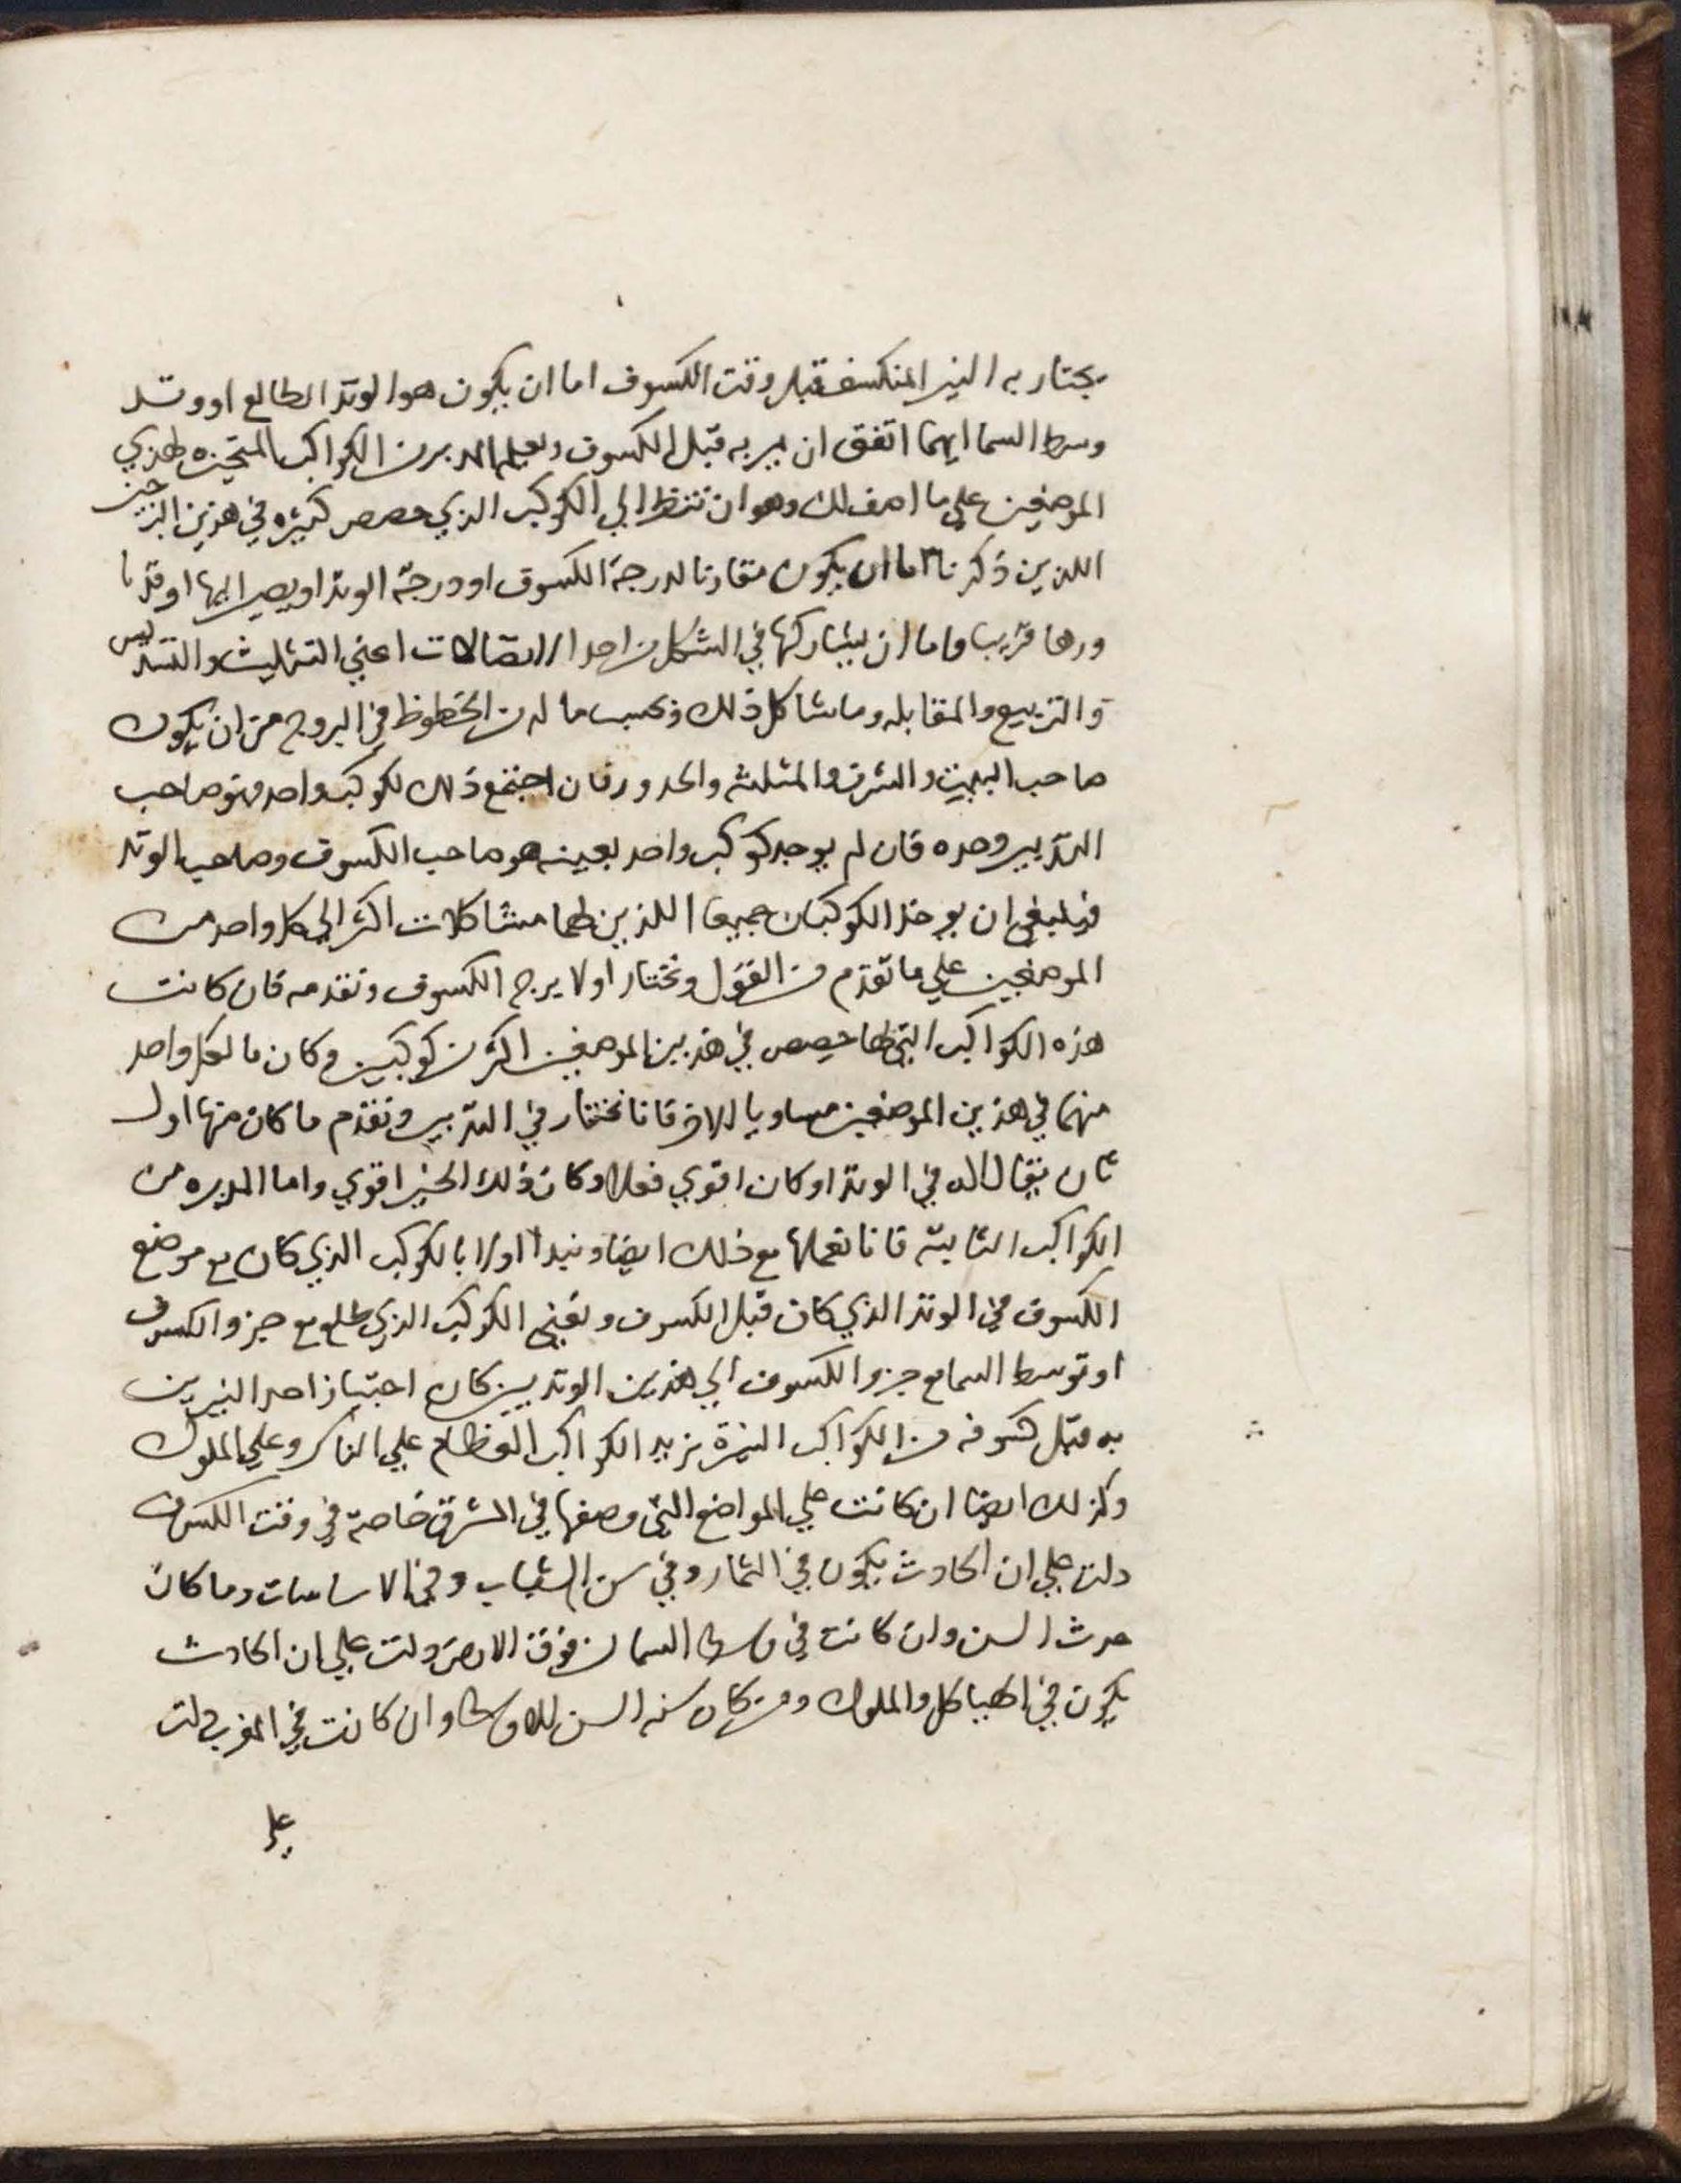 يجتاز به النير المنكسف قبل وقت الكسوف اما ان يكون هو الوتد الطالع او وتد
وسط السما ايهما اتفق ان يمر به قبل الكسوف ويعلم المدبر من الكواكب المتحيزه لهذي
الموضعين علي ما اصف لك وهو ان تنظر الي الكوكب الذي حصص كثيره في هذين الجزين
اللذين ذكرنا اما ان يكون مقارنا لدرجة الكسوف او درجة الوتد او يصير اليها او قد جا
ورها قريب واما ان يشاركها في الشكل من احد الاتصالات اعني التثليث والتسديس
والتربيع والمقابله وما شاكل ذلك وبحسب ما له من الحظوظ في البروج من ان يكون
صاحب البيت والشرف والمثلثه والحدود فان اجتمع ذلك لكوكب واحد فهو صاحب
التدبير وحده فان لم يوجد كوكب واحد بعينه هو صاحب الكسوف وصاحب الوتد
فينبغي ان يوخذ الكوكبان جميعا اللذين لهما مشاكلات اكثر الي كل واحد من
الموضعين علي ما تقدم من القول ونختار اولا برج الكسوف ونقدمه فان كانت
هذه الكواكب التي لها حصص في هذين الموضعين اكثر من كوكبين وكان ما لكل واحد
منهما في هذين الموضعين مساويا للاخر فانا نختار في التدبير ونقدم ما كان منها اولي
بان يقال انه في الوتد او كان اقوي فعلا وكان ذلك الحيز اقوي واما المدبره من
الكواكب الثابتة فانا نعملها مع ذلك ايضا ونبدا اولا بالكوكب الذي كان مع موضع
الكسوف في الوتد الذي كان قبل الكسوف ونعني الكوكب الذي طلع مع جزو الكسوف
او توسط السما مع جزو الكسوف الي هذين الوتدين كان اجتياز احد النيرين
به قبل كسوفه من الكواكب النيرة يزيد الكواكب العظام علي الناس وعلي الملوك
وكذلك ايضا ان كانت علي المواضع التي وصفها في المشرق خاصة في وقت الكسوف
دلت علي ان الحادث يكون في الثمار وفي سن الشباب وفي الاساسات وما كان
حدث السن وان كانت في وسط السما من فوق الارض دلت علي ان الحادث
يكون في الهياكل والملوك ومن كان سنه السن الاوسط وان كانت في المغرب دلت
علي